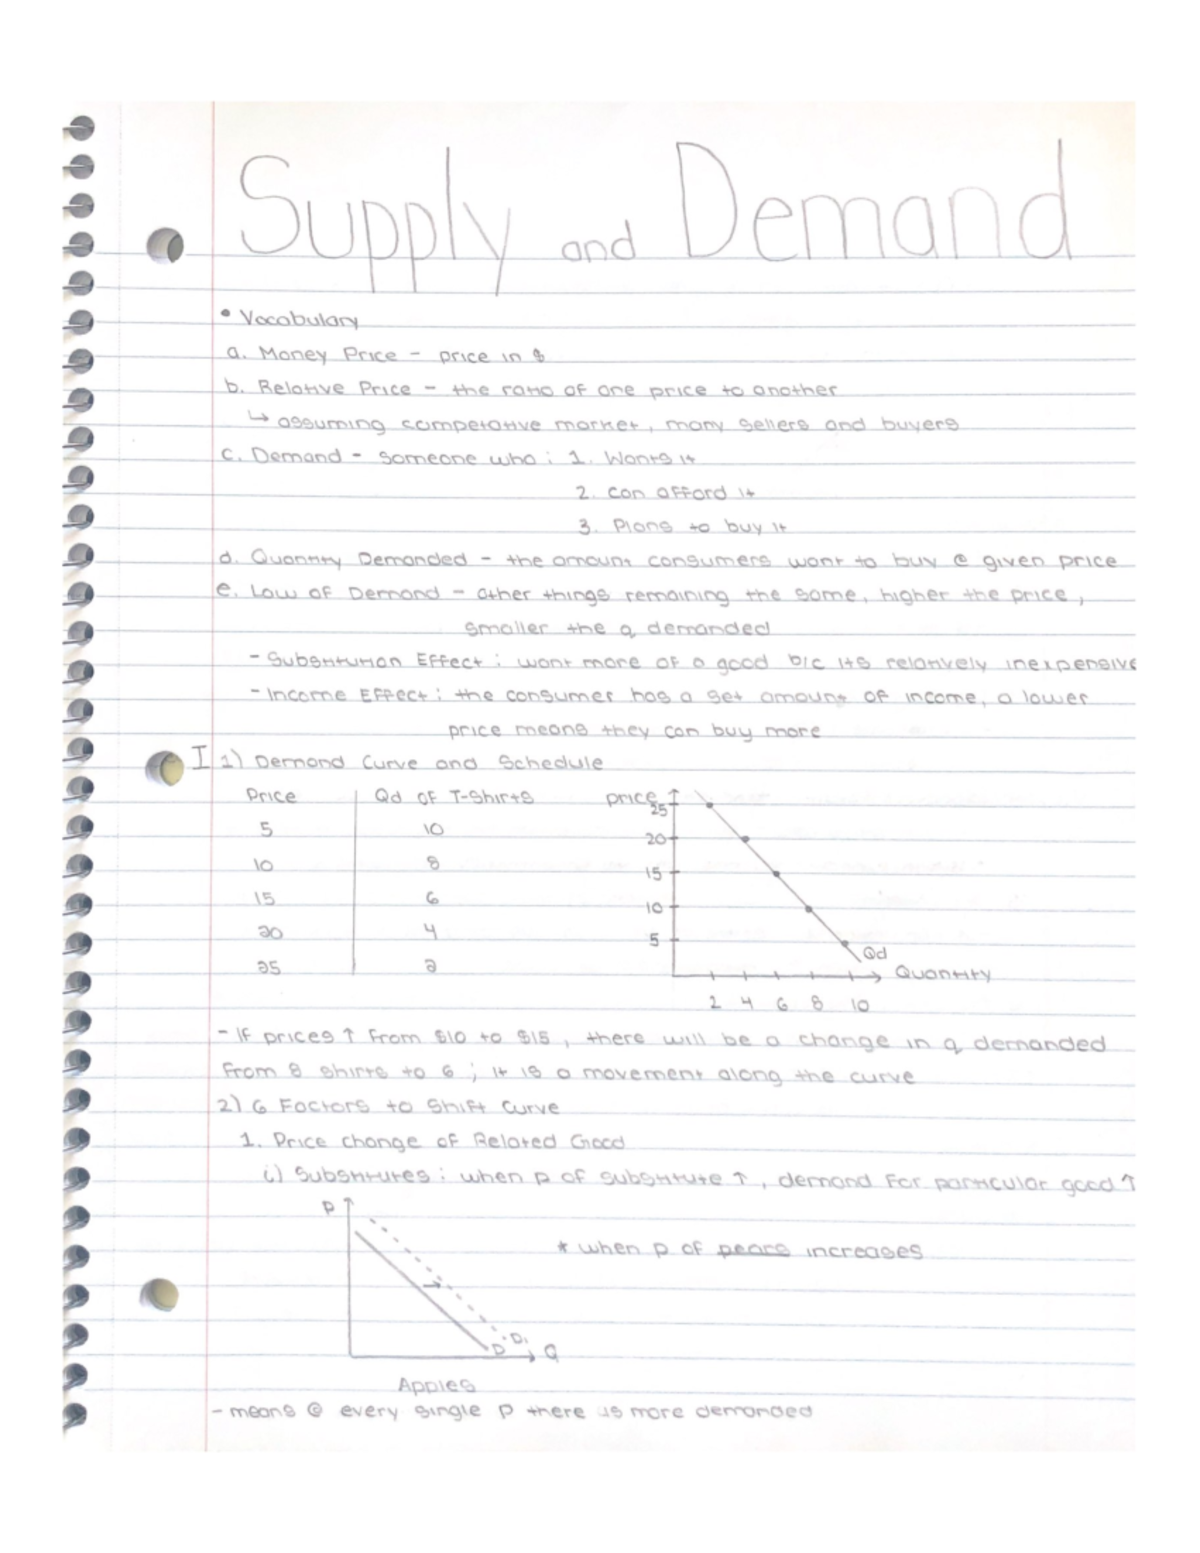 Supply and Demand
• Vocabulary
a. Money Price - price in $
b. Relative Price - the ratio of one price to another
↳ assuming competative market, many sellers and buyers
c. Demand - someone who: 1. Wants it
2. can afford it
3. Plans to buy it
d. Quantity Demanded - the amount consumers want to buy @ given price
e. Law of Demand - other things remaining the same, higher the price,
smaller the q demanded
- Substitution Effect: want more of a good b/c its relatively inexpensive
- Income Effect: the consumer has a set amount of income, a lower
price means they can buy more
I 1) Demand Curve and Schedule
Price Qd of T-Shirts
5 10
10 8
15 6
20 4
25 2
price
25
20
15
10
5
Qd
Quantity
2 4 6 8 10
- If prices ↑ from $10 to $15, there will be a change in q demanded
from 8 shirts to 6; it is a movement along the curve
2) 6 Factors to Shift Curve
1. Price change of Related Good
i) Substitutes: when p of substitute ↑, demand for particular good ↑
P
* when p of pears increases
D D₁ Q
Apples
- means @ every single p there is more demanded